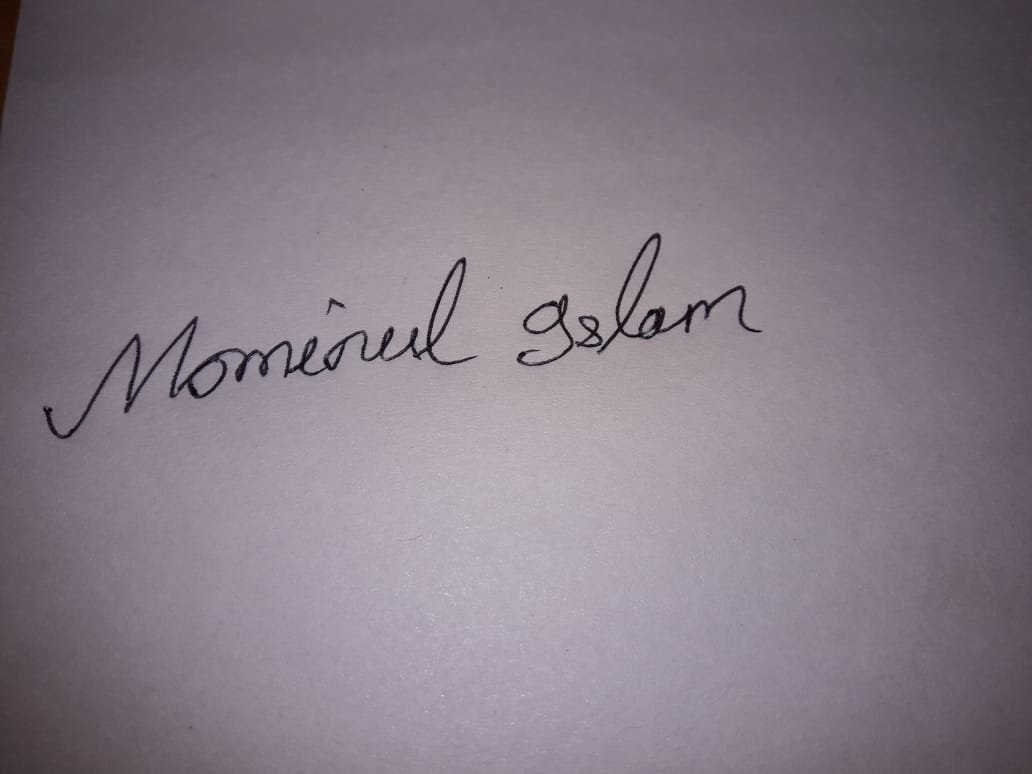 Mominul Islam